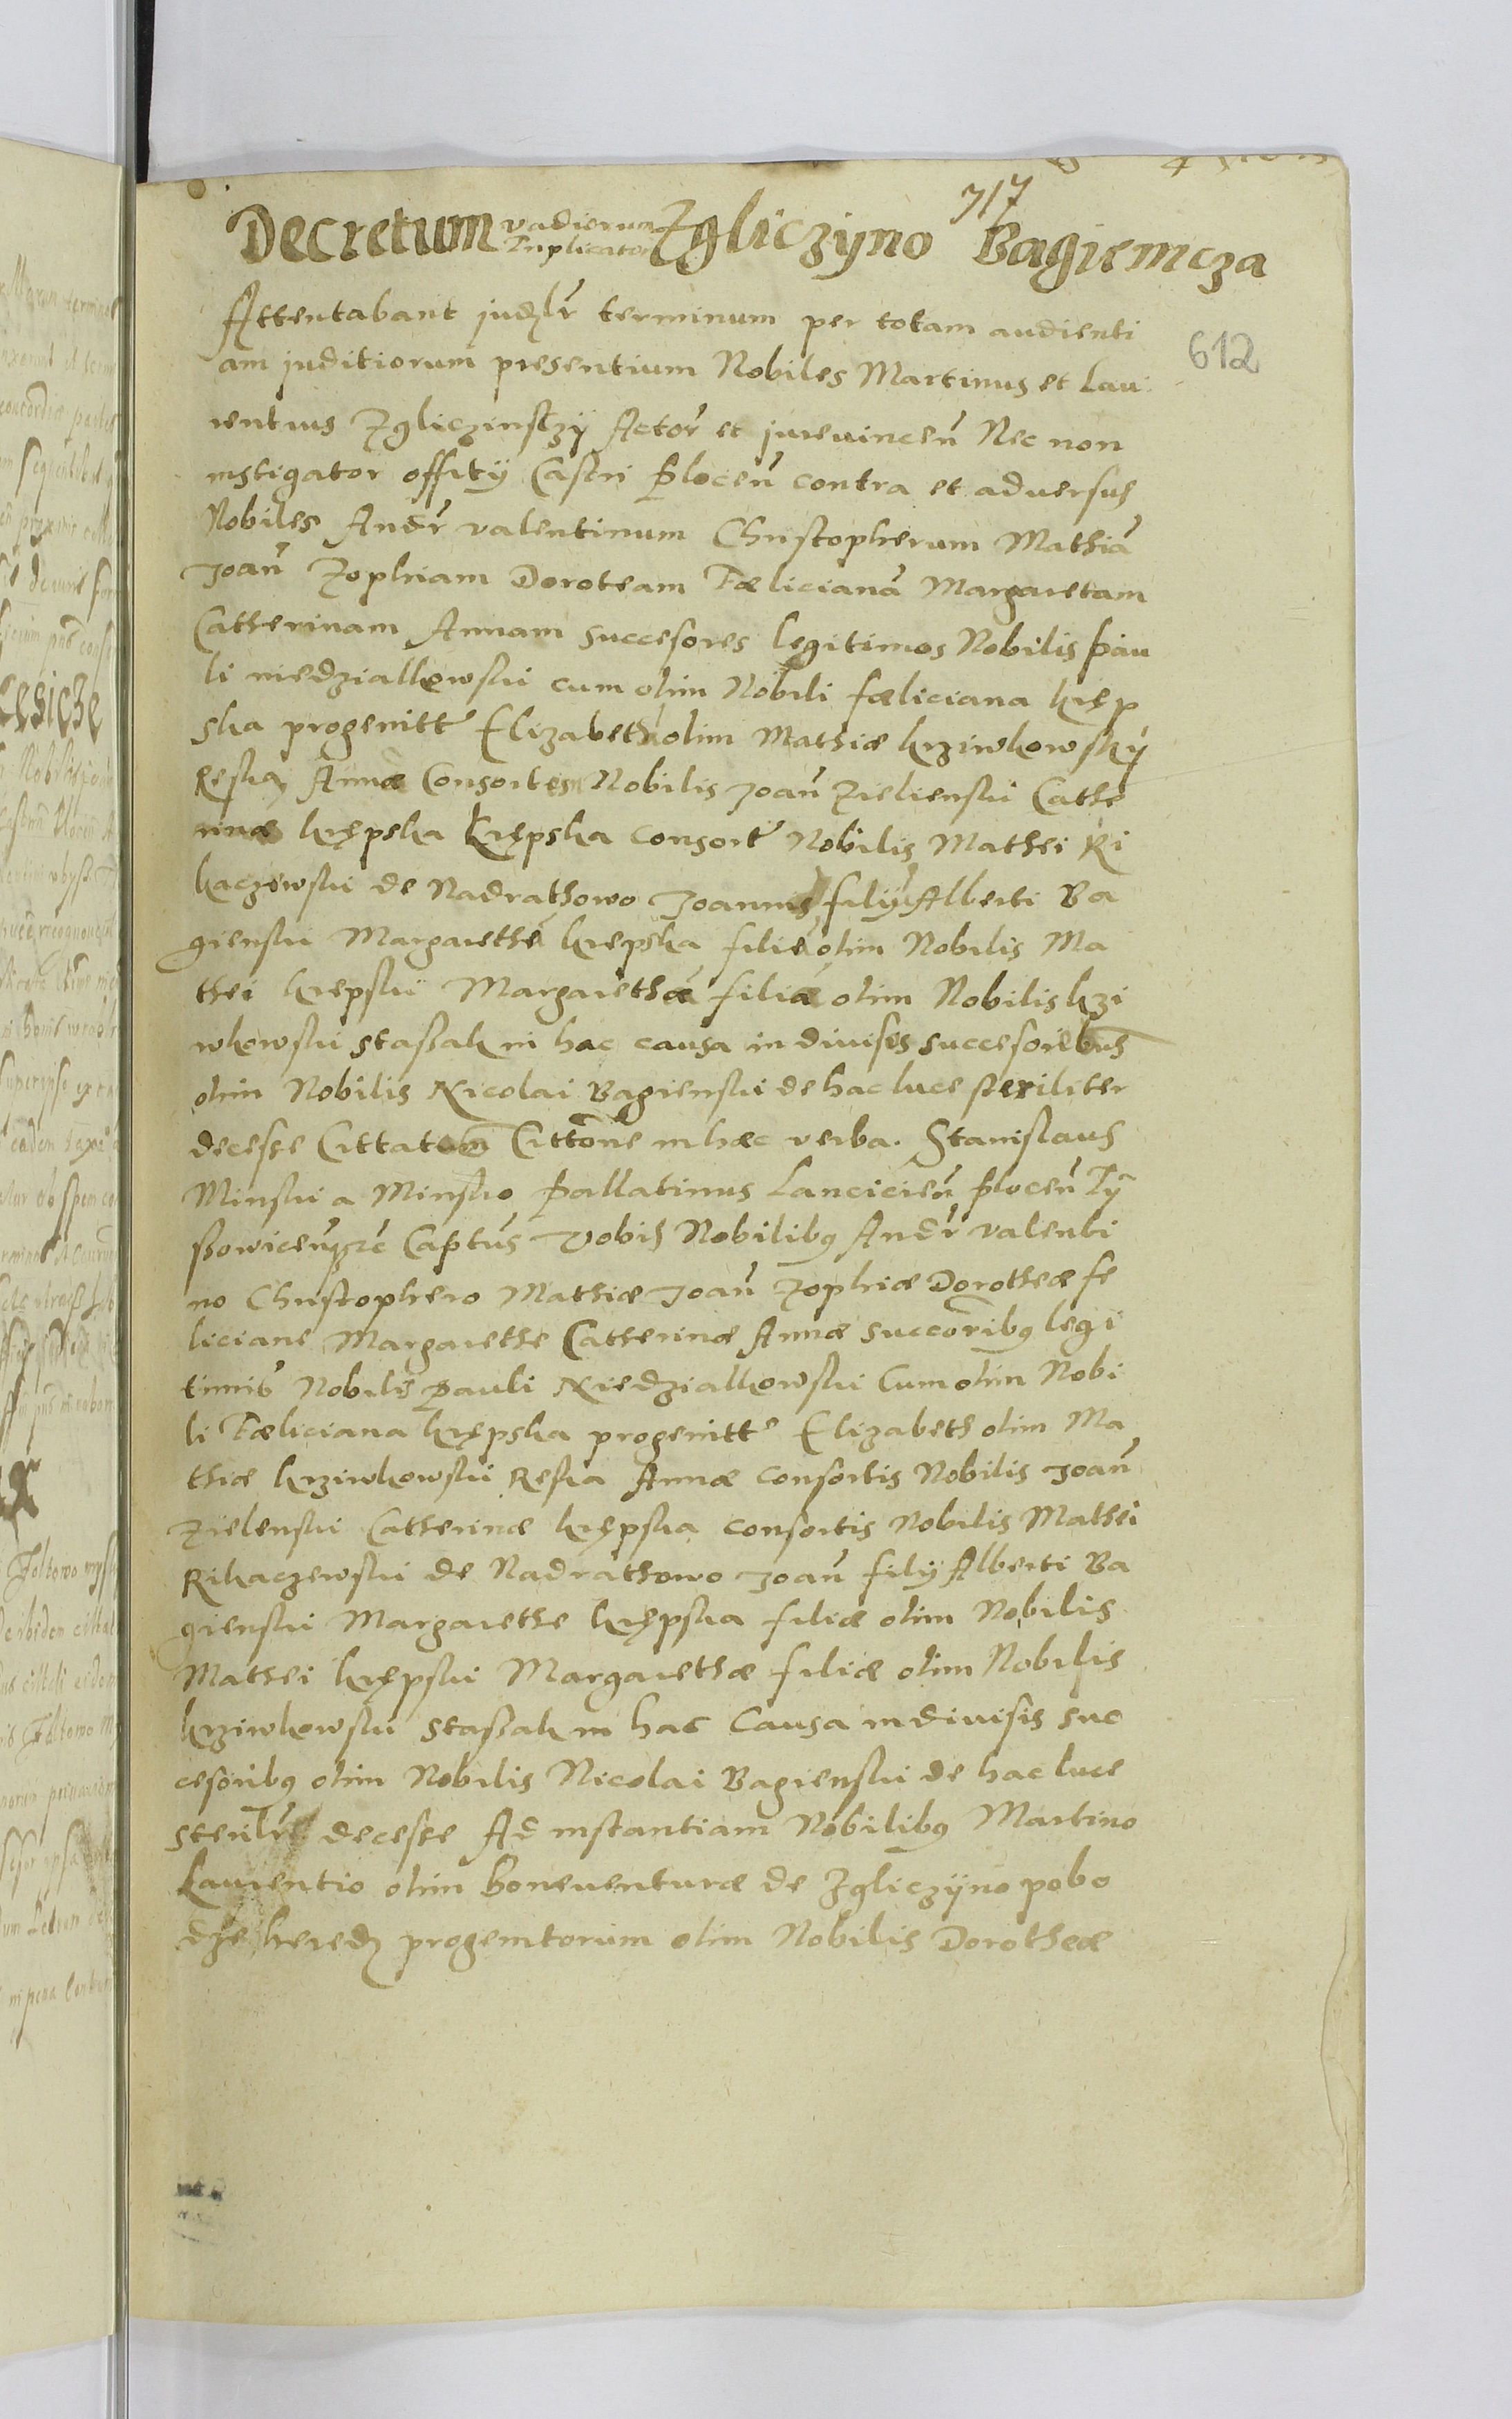 717
Decretum vadiorum Triplicator Zgliczyno Bagiemcza
612
Attentabant judlr terminum per totam audienti
am juditiorum presentium Nobiles Martinus et Lau
rentius Zgliczinsczy Actor et jurevincen Nec non
instigator offity Castri Plocen contra et adversus
Nobiles Andr valentinum Christopherum Mathia
Joan Zophiam Doroteam Fæliciana Margaretam
Catherinam Annam succesores legitimos Nobilis Pau
li niedziallkowski cum olim Nobili fæliciana kręp
ska progenitt Elizabeth olim Mathiæ krziwkowsky
Relicta Annæ Consortes Nobilis Joan Zielienski Cathe
rinæ krępska krępska consort Nobilis Mathei Ri
kaczewski de Nadrathowo Joannis fily Alberti Ba
gienski Margarethe krepska filie olim Nobilis Ma
thei krepski Margarethæ filiæ olim Nobilis kzi
wkowski staßak in hac causa in divisis succesoribus
olim Nobilis Nicolai Bagienski de hac luce steriliter
decesse Cittatem Cittone in hæc verba. Stanislaus
Minski a Minsko Pallatinus Lancicien Plocen Ty
ßowicen etc Captus Vobis Nobilibus Andr valenti
no Christophero Mathiæ Joan Zophiæ Dorotheæ fe
liciane Margarethe Catherinæ Annæ succoribus legi
timis Nobilis Pauli Niedziallkowski cum olim Nobi
li Fæliciana krępska progenitt Elizabeth olim Ma
thiæ krziwkowski Relicta Annæ consortis Nobilis Joan
Zielenski Catherinæ krępska consortis Nobilis Mathei
Rikaczewski de Nadrathowo Joan fily Alberti Ba
gienski Margarethe krępska filiæ olim Nobilis
Mathei krępski Margarethæ filiæ olim Nobilis
krziwkowski staßak in hac causa indivisis suc
cesoribus olim Nobilis Nicolai Bagienski de hac luce
sterilr decesse Ad instantiam Nobilibus Martino
Laurentio olim Boneventuræ de Zgliczyno pobo
dze hered progenitorum olim Nobilis Dorotheæ